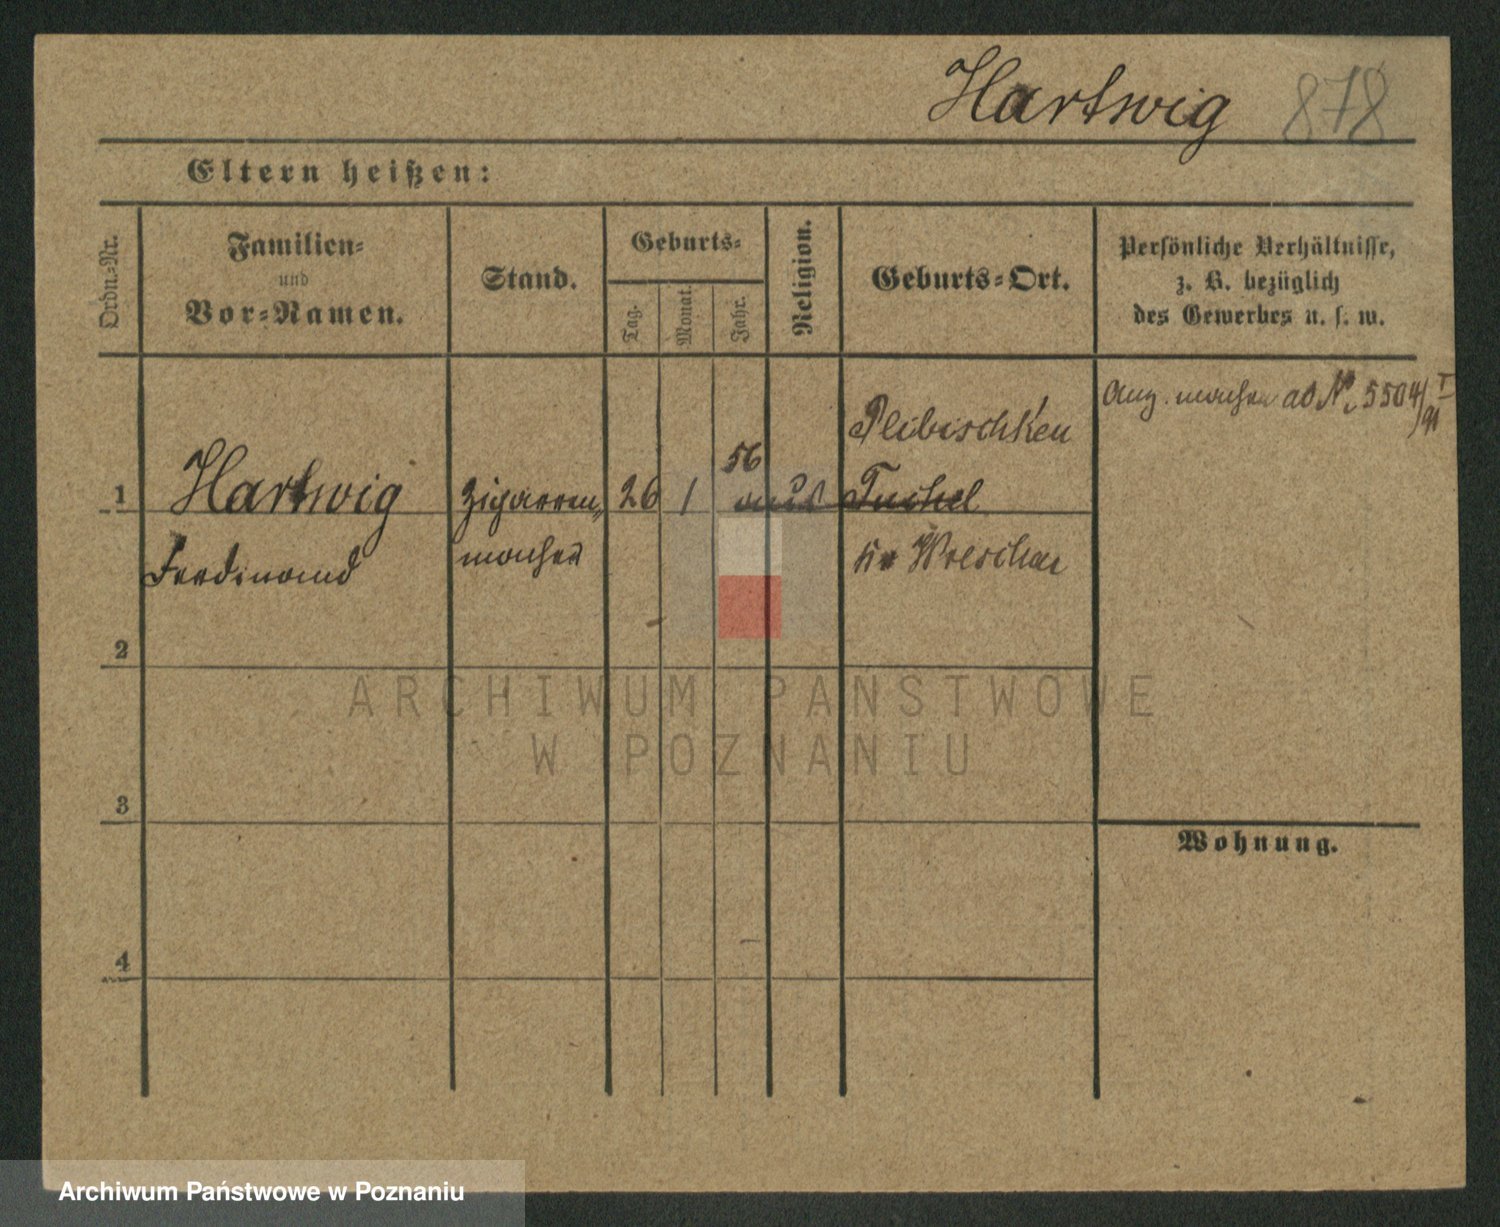 Hartwig 878
Eltern heißen:
Ordn.-Nr.
Familien-
und
Vor-Namen.
Stand.
Geburts-
Tag.
Monat.
Jahr.
Religion.
Geburts-Ort.
Persönliche Verhältnisse,
z. B. bezüglich
des Gewerbes u. s. w.
1
Hartwig
Ferdinand
Zigarren
macher
26
1
56
aus Tuchel
Plibischken
Kr
ad No 5504/I 91
2
3
4
Wohnung.
ARCHIWUM PAŃSTWOWE
W POZNANIU
Archiwum Państwowe w Poznaniu